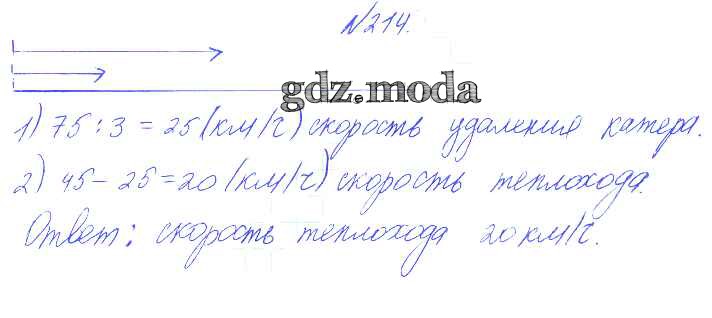 №214.
gdz.moda
1) 75 : 3 = 25 (км/ч) скорость удаления катера.
2) 45 - 25 = 20 (км/ч) скорость теплохода.
Ответ: скорость теплохода 20 км/ч.